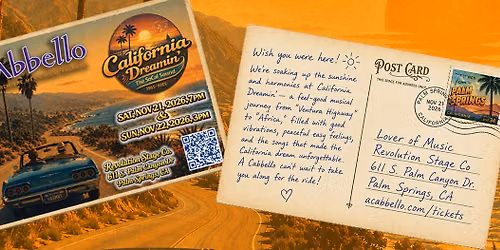 Cabbello
California
Dreamin'
The SoCal Sound
SAT, NOV 21, 2026, 7PM
&
SUN, NOV 22, 2026, 3PM
Revolution Stage Co.
611 S Palm Canyon Dr
Palm Springs, CA
Wish you were here!
We're soaking up the sunshine
and harmonies at California
Dreamin' – a feel-good musical
journey from "Ventura Highway"
to "Africa," filled with good
vibrations, peaceful easy feelings,
and the songs that made the
California dream unforgettable.
A Cabbello can't wait to take
you along for the ride!
POST CARD
PALM SPRINGS
NOV 21
2026
CALIFORNIA
PALM
SPRINGS
Lover of Music
Revolution Stage Co
611 S. Palm Canyon Dr.
Palm Springs, CA
acabbello.com/tickets